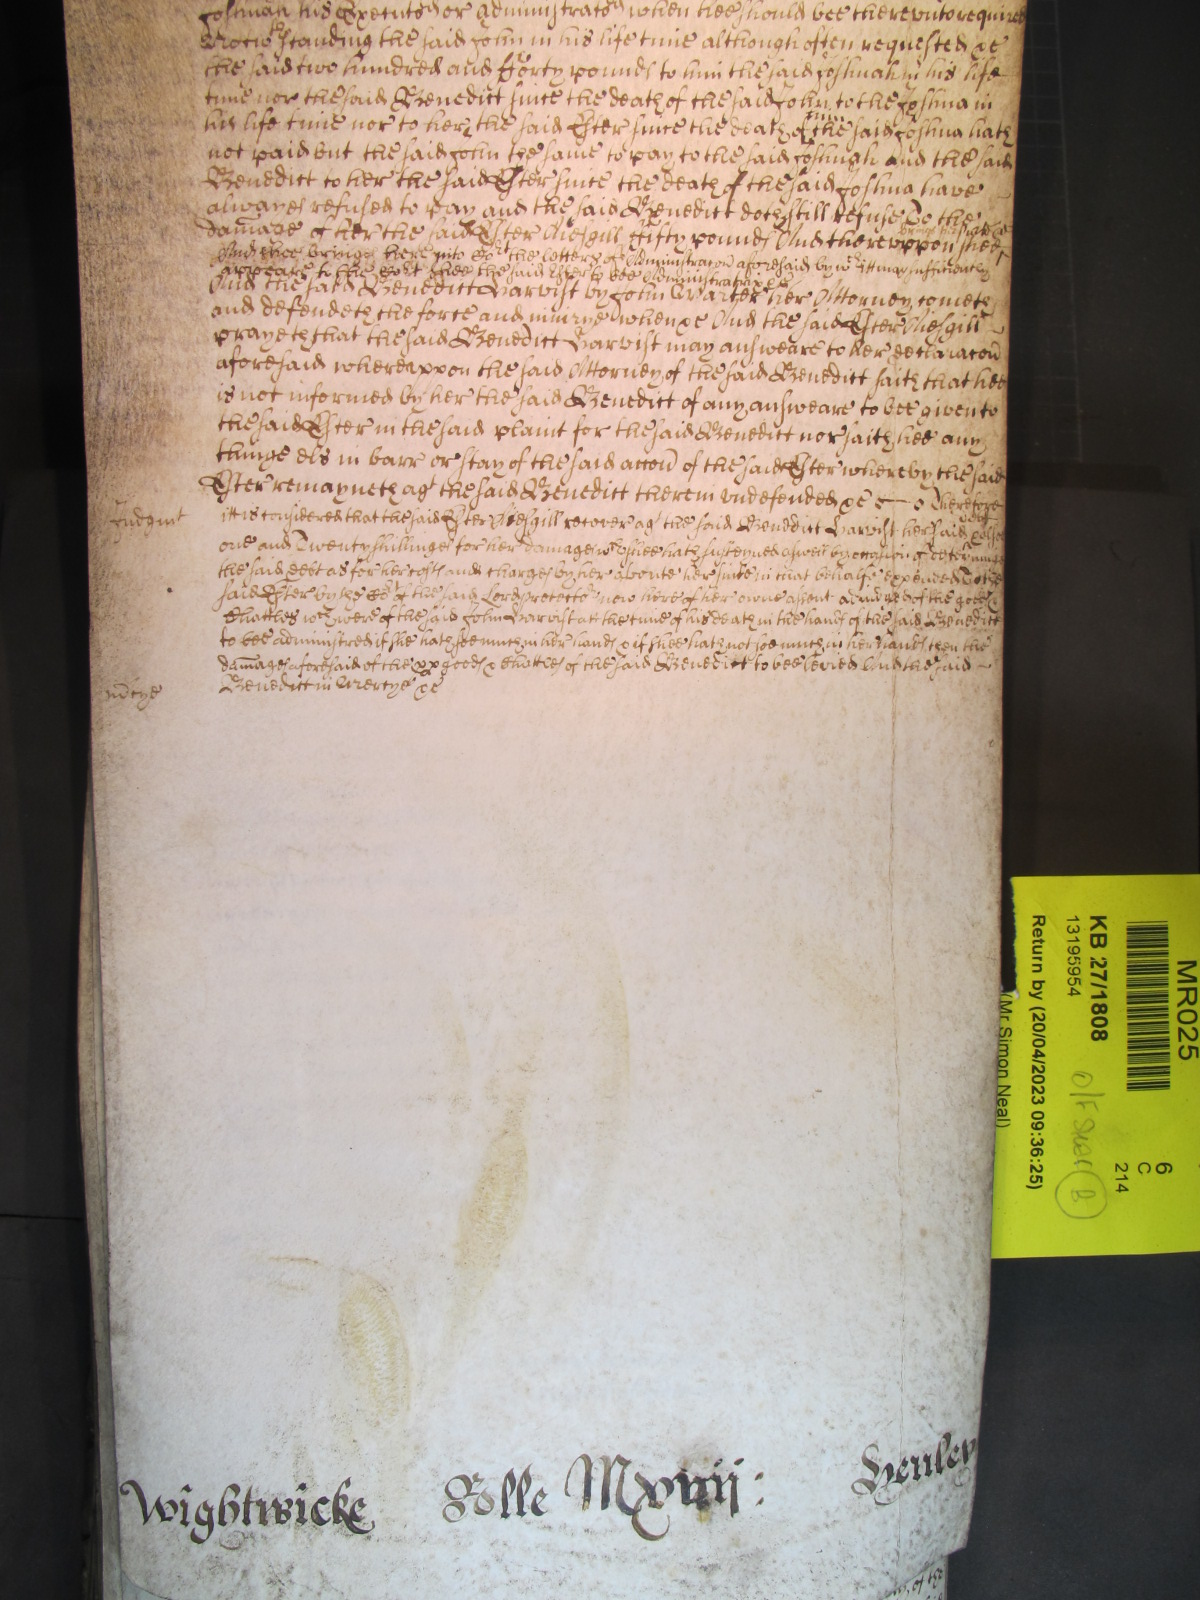 Joshuah his Executor or administrator when hee should bee therevnto required
Notwthstanding the said John in his life time although often requested &c
the said two hundred and fforty pounds to him the said Joshuah in his life
time nor the said Benedict since the death of the said John to the Joshua in
his life time nor to her the said Ester since the death of the said Joshua hath
not paid but the said John the same to pay to the said Joshuah and the said
Benedict to her the said Ester since the death of the said Joshua have
alwayes refused to pay and the said Benedict doth still refuse To the
damage of her the said Ester Mesgill ffifty pounds And therevppon shee
And shee brings here into Cort the letters of Administracon aforesaid by wch itt may sufficiently
appeare to the Cort shee the said Ester to bee Administratrix &c
And the said Benedict Barvist by John Warter her Attorney cometh
and defendeth the force and iniurye when &c And the said Ester Mesgill
prayeth that the said Benedict Barvist may answeare to her declaracon
aforesaid wherevppon the said Attorney of the said Benedict saith that hee
is not informed by her the said Benedict of any answeare to bee given to
the said Ester in the said plaint for the said Benedict nor saith hee any
thinge els in barr or stay of the said accon of the said Ester whereby the said
Ester remayneth agt the said Benedict therein vndefended &c Therefore
Judgmt
itt is considered that the said Ester Mesgill recover agt the said Benedict Barvist her said debt
one and Twenty shillinges for her damages wch shee hath susteyned aswell by occasion of deteyninge
the said debt as for her costs and charges by her aboute her suite in that behalfe expended To the
said Ester by the Cort of the said Lord protector now here of her owne assent adiudged of the goods
Chattles wch were of the said John Barvist at the time of his death in the hands of the said Benedict
to bee administred if she hath soe much in her hands & if shee hath not soe much in her hands then the
damages aforesaid of the pp goods & chattles of the said Benedict to bee levied And the said
mcye
Benedict in Mercye &c
Wightwicke Rolle Mxviij : Henley
MR025
KB 27/1808
13195954
Return by (20/04/2023 09:36:25)
(Mr Simon Neal)
6
C
214
B